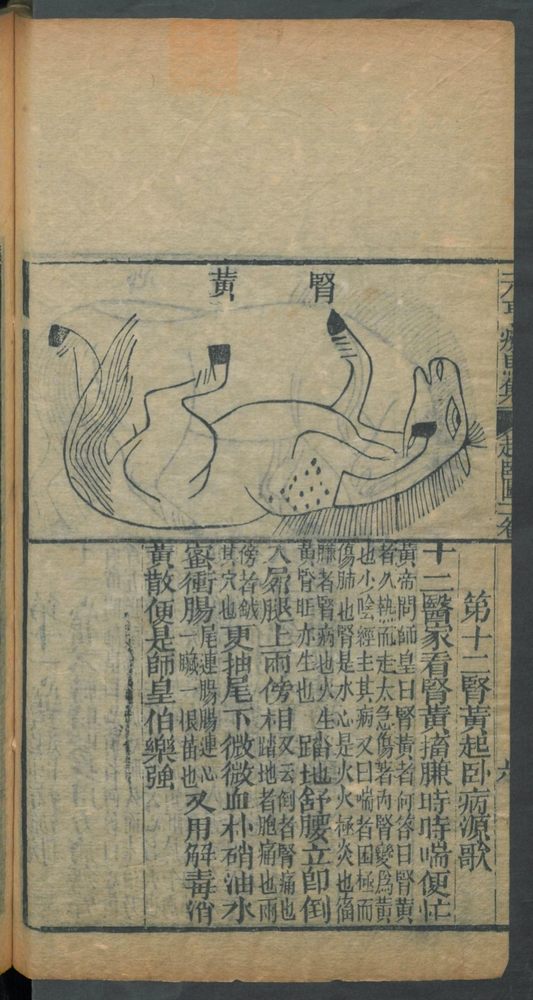 腎黃
第十二腎黃起卧病源歌
十二醫家看腎黃搐䐐時時喘便忙
黃帝問師皇曰腎黃者何答曰腎黃
者久熱而走太急傷著內腎變爲黃
也小唫經主其病又曰喘者困極而
傷肺也腎是水心是火火極炎也搐
䐐者腎病也火生
黃腎旺亦生也
蹈地舒腰立卽倒
入 腿上兩傍相
蹈地者胞痛也兩
又云倒者腎痛也
傍者
其穴也
更抽尾下微微血朴硝油水
蜜衝腸
尾連腸腸連心
一 一 苗也
又用解毒消
黃散便是師皇伯樂強
起臥圖一卷
六